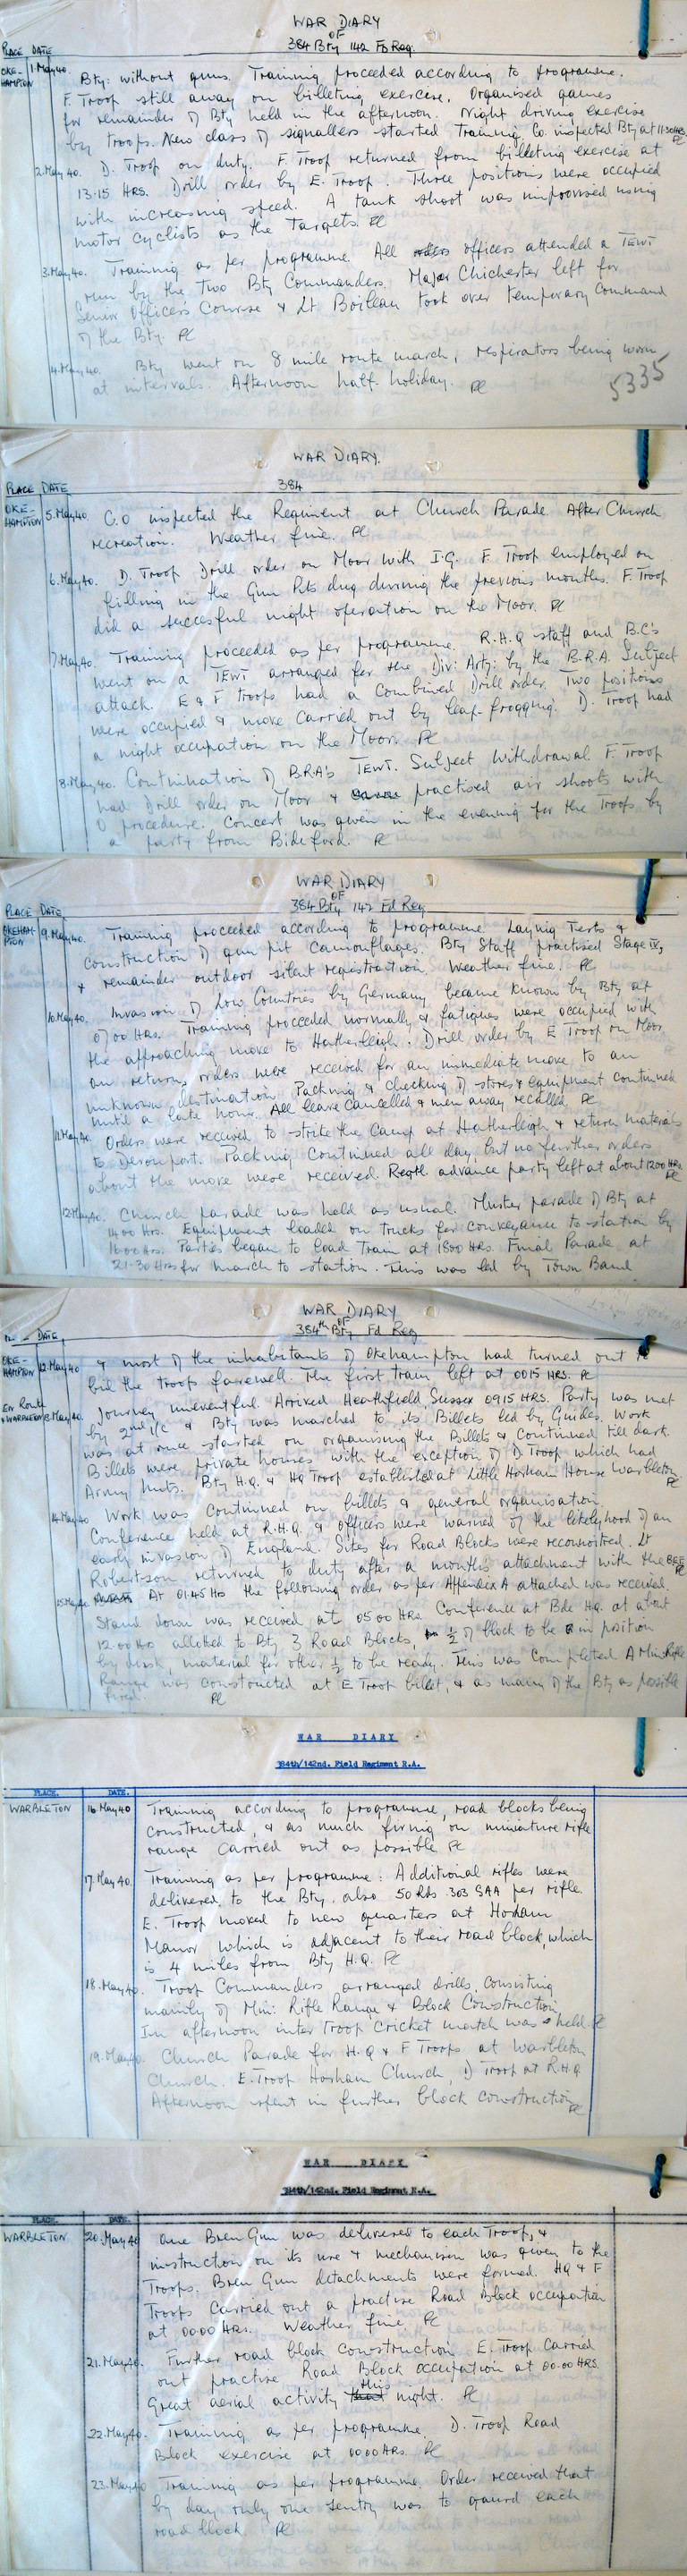 WAR DIARY
OF
384 Bty 142 Fd Reg.
PLACE DATE
OKE-
HAMPTON
1.May 40. Bty: without guns. Training proceeded according to programme.
F. Troop still away on billeting exercise. Organised games
for remainder of Bty held in the afternoon. Night driving exercise
by troops. New class of signallers started training. Co. inspected Bty at 11.30 HRS.
2.May 40. D. Troop on duty. F. Troop returned from billeting exercise at
13.15 HRS. Drill order by E. Troop. Three positions were occupied
with increasing speed. A tank shoot was improvised using
motor cyclists as the Targets.
3.May 40. Training as per programme. All officers attended a TEWT
run by the two Bty Commanders. Major Chichester left for
Senior Officers Course & Lt Boileau took over temporary command
of the Bty.
4.May 40. Bty went on 8 mile route march, respirators being worn
at intervals. Afternoon half holiday.
5335
WAR DIARY.
384
PLACE DATE
OKE-
HAMPTON
5.May 40 C.O inspected the Regiment at Church Parade After Church
recreation. Weather fine.
6.May 40. D. Troop Drill order on Moor with I.G. F Troop employed on
filling in the Gun Pits dug during the previous months. F. Troop
did a succesful night operation on the Moor.
7.May 40. Training proceeded as per programme. R.H.Q staff and B.C's
went on a TEWT arranged for the Div: Arty: by the B.R.A. Subject
attack. E & F troops had a combined Drill order. Two positions
were occupied & move carried out by leap-frogging. D. Troop had
a night occupation on the Moor.
8.May 40. Continuation of B.R.A's TEWT. Subject Withdrawal F. Troop
had Drill order on Moor & practised air shoots with
O procedure. Concert was given in the evening for the troops by
a party from Bideford.
WAR DIARY
OF
384 Bty 142 Fd Reg
PLACE DATE
OKEHAM-
PTON
9.May 40. Training proceeded according to programme. Laying Tests &
construction of gun pit camouflages. Bty Staff practised Stage IV,
& remainder outdoor silent registration. Weather fine.
10.May 40. Invasion of Low Countries by Germany became known by Bty at
0700 HRS. Training proceeded normally & fatigues were occupied with
the approaching move to Hatherleigh. Drill order by E Troop on Moor
on return, orders were received for an immediate move to an
unknown destination. Packing & checking of stores & equipment continued
until a late hour. All leave cancelled & men away recalled.
11.May 40. Orders were received to strike the Camp at Hatherleigh & return materials
to Devonport. Packing continued all day but no further orders
about the move were received. Regtl advance party left at about 1200 HRS.
12.May 40. Church parade was held as usual. Muster parade of Bty at
1400 Hrs. Equipment loaded on trucks for conveyance to station by
1600 Hrs. Parties began to load Train at 1800 HRS. Final Parade at
21.30 HRS for march to station. This was led by Town Band
WAR DIARY
OF
384th Bty Fd Reg
DATE
OKE-
HAMPTON
12.May 40 & most of the inhabitants of Okehampton had turned out to
bid the troops farewell. The first train left at 0015 HRS.
En Route
& WARBLETON
13.May 40. Journey uneventful. Arrived Heathfield Sussex 0915 HRS. Party was met
by 2nd I/C & Bty was marched to its Billets led by Guides. Work
was at once started on organising the Billets & continued till dark.
Billets were private houses with the exception of D. Troop which had
Army huts. Bty H.Q. & HQ Troop established at Little Horham House Warbleton.
14.May 40 Work was continued on billets & general organisation.
Conference held at R.H.Q. & officers were warned of the likelyhood of an
early invasion of England. Sites for Road Blocks were reconnoitred. Lt
Robertson returned to duty after a months attachment with the B.E.F.
15.May 40 At 0145 Hrs the following order as per Appendix A attached was received.
Stand down was received at 0500 HRs. Conference at Bde HQ. at about
1200 Hrs allotted to Bty 3 Road Blocks, ½ of block to be in position
by dusk, material for other ½ to be ready. This was completed A Mini Rifle
Range was constructed at E Troop billet, & as many of the Bty as possible
fired.
WAR DIARY
384th/142nd. Field Regiment R.A.
PLACE. DATE.
WARBLETON 16 May 40 Training according to programme, road blocks being
constructed, & as much firing on miniature rifle
range carried out as possible
17.May 40. Training as per programme. Additional rifles were
delivered to the Bty. also 50 Rds .303 SAA per rifle.
E. Troop moved to new quarters at Horham
Manor which is adjacent to their road block, which
is 4 miles from Bty H.Q.
18.May 40. Troop Commanders arranged drills, consisting
mainly of Mini: Rifle Range & Block Construction,
In afternoon inter Troop Cricket match was held.
19.May 40. Church Parade for H.Q & F Troops at Warbleton
Church. E. Troop Horham Church, D Troop at R.H.Q.
Afternoon spent in further block construction
WAR DIARY
384th/142nd. Field Regiment R.A.
PLACE. DATE.
WARBLETON 20.May 40 One Bren Gun was delivered to each Troop, &
instruction on its use & mechanism was given to the
Troops. Bren Gun detachments were formed. HQ & F
Troops carried out a practise Road Block occupation
at 00.00 HRS. Weather fine
21.May 40. Further road block construction. E. Troop Carried
out practise Road Block occupation at 00.00 HRS
Great aerial activity this night.
22.May 40. Training as per programme. D. Troop Road
Block exercise at 0000 HRS.
23.May 40 Training as per programme. Order received that
by day only one sentry was to gaurd each
road block.